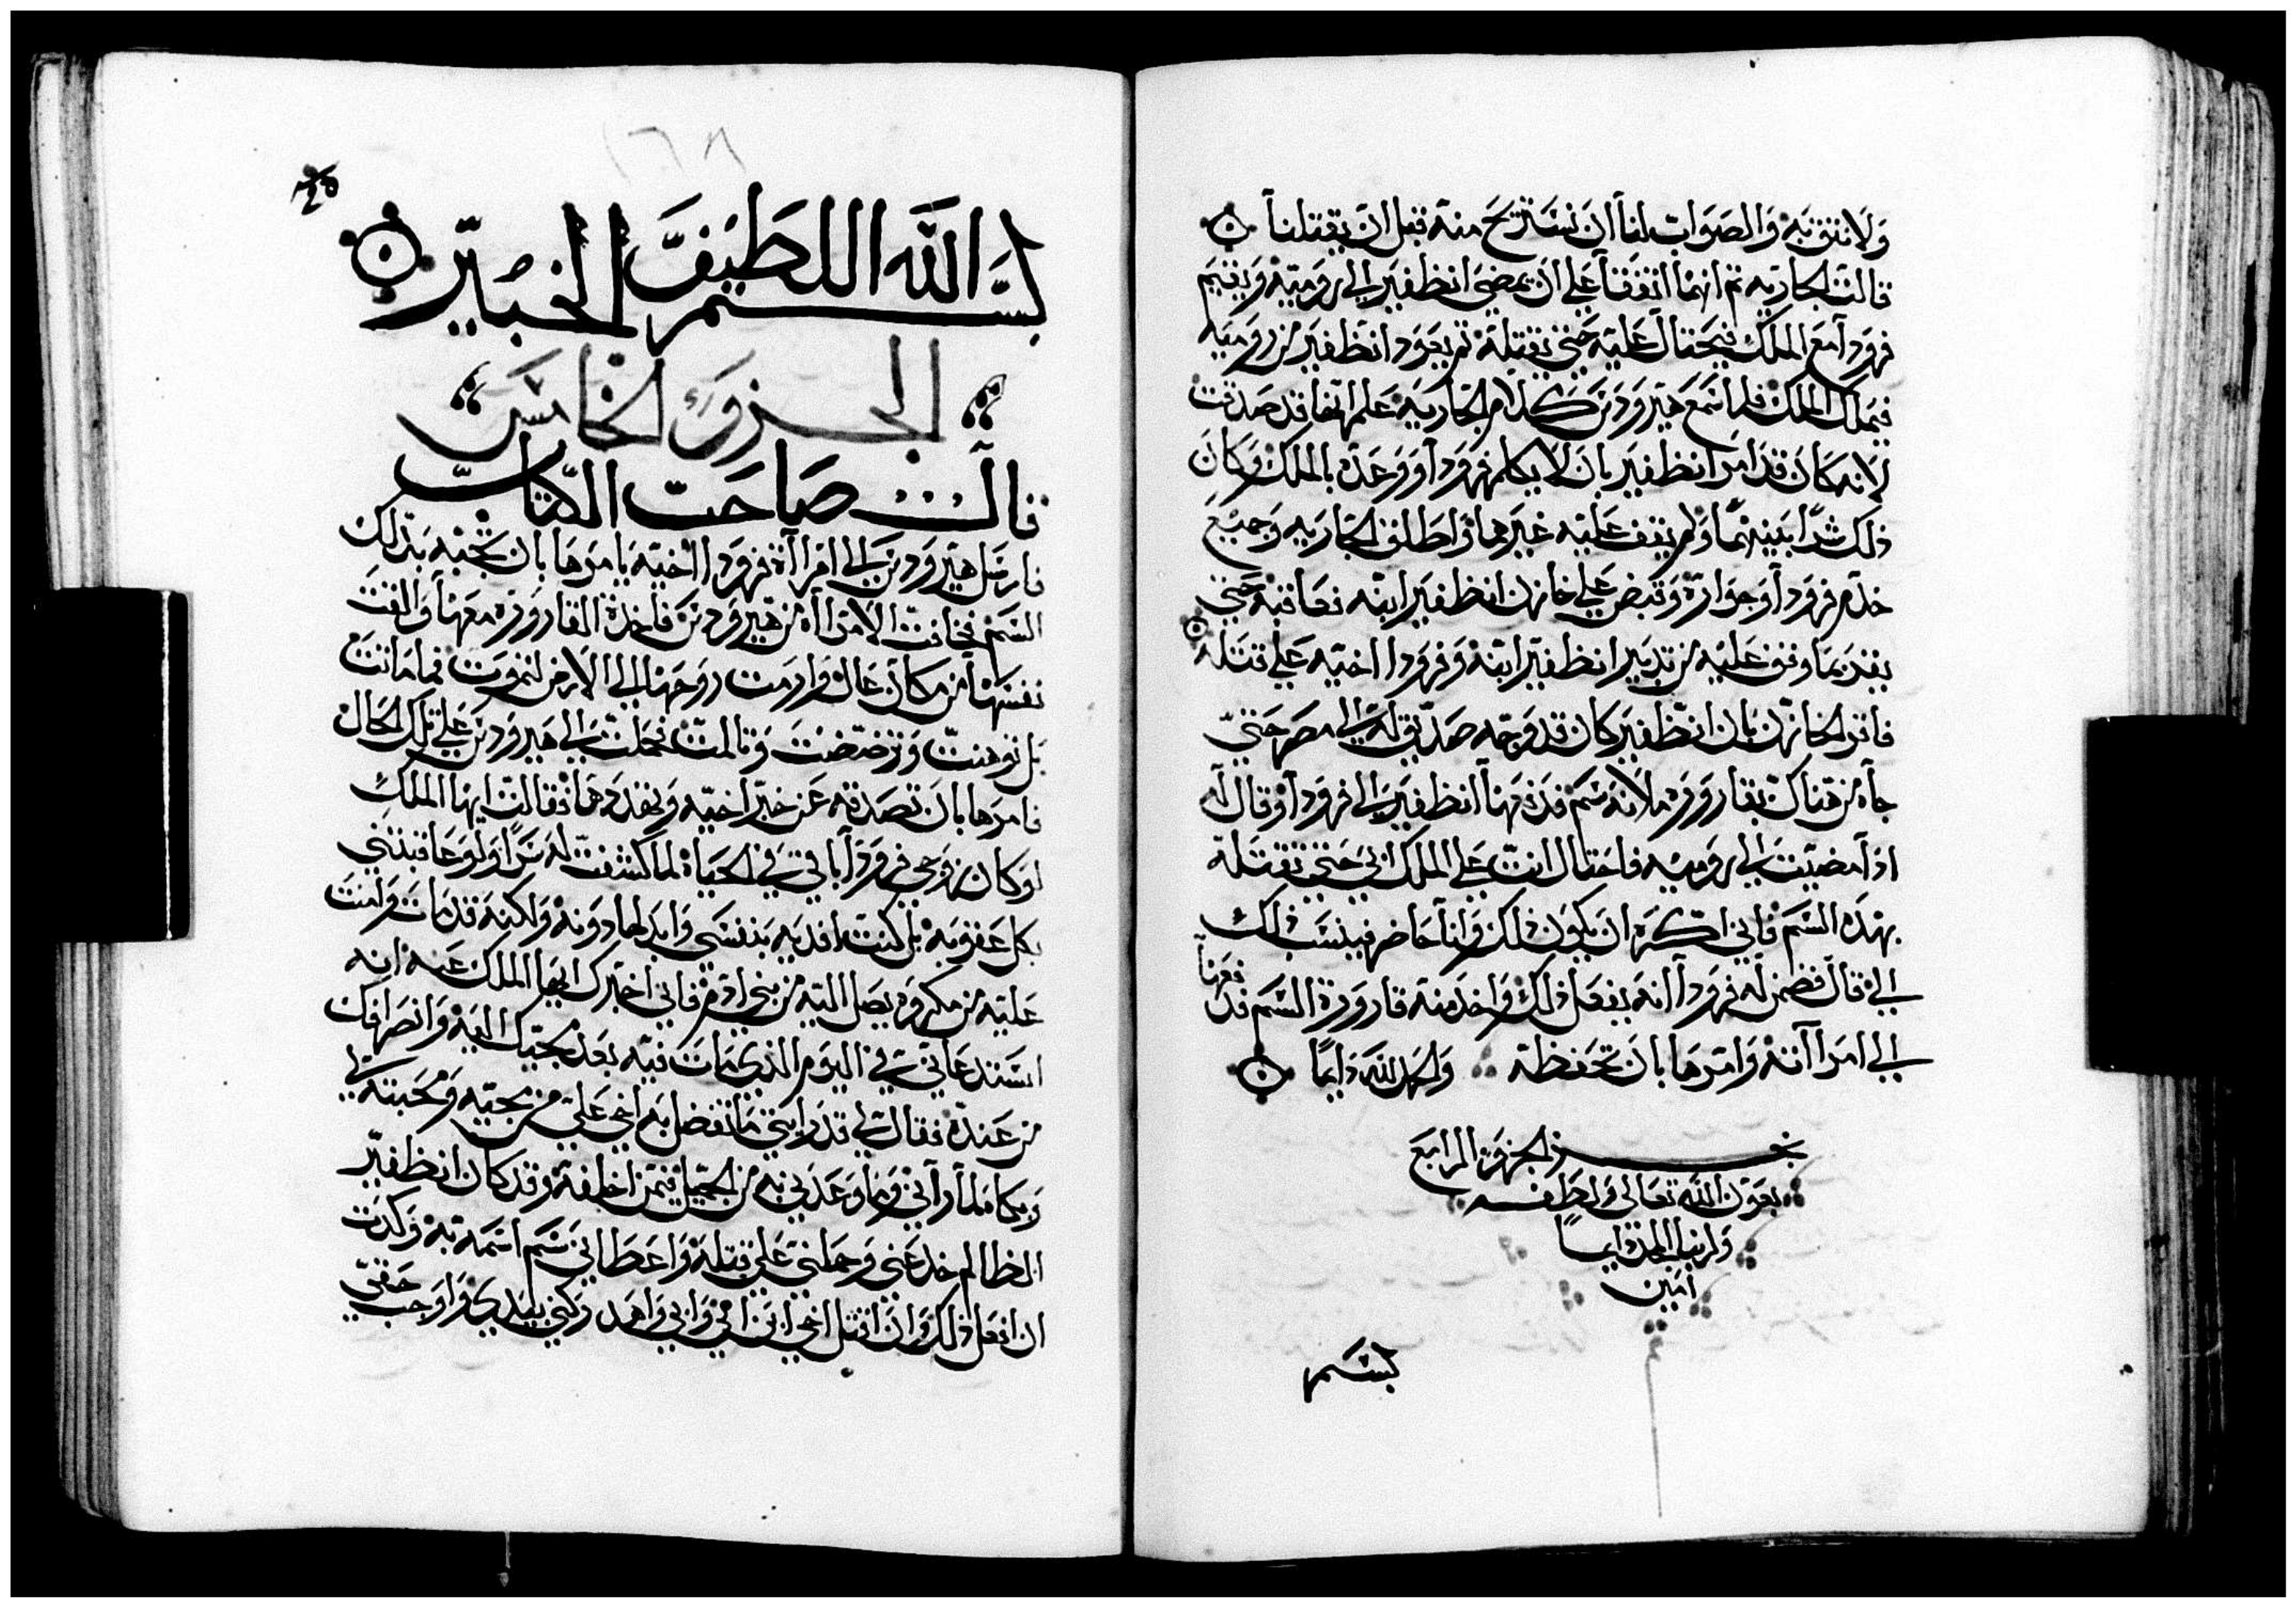 ولا نثق به والصواب لنا ان نستريح منه قبل ان يقتلنا
قالت الجاريه ثم انهما اتفقا علي ان يمضي انظفير الي روميه ويقيم
فرودا مع الملك فيحتال عليه حتي يقتله ثم يعود انظفير من روميه
فيملك الملك فلما سمع هيرودس كلام الجاريه علم انها قد صدقت
لانه كان قد امر انظفير بان لا يكلم فرودا ووعده بالملك وكان
ذلك سرا بينهما ولم يقف عليه غيرهما واطلق الجاريه وجميع
خدم فرودا وجواره وقبض علي خازن انظفير ابنه فعاقبه حتي
يقر بما وقف عليه من تدبير انظفير ابنه وفرودا اخيه علي قتله
فاقر الخازن بان انظفير كان قد وجه صديق له الي مصر حتي
جاه من هناك بقاروره ملانه سم فدفعها انظفير الي فرودا وقال له
اذا مضيت الي روميه فاحتال انت علي الملك ابي حتي تقتله
بهذه السم فاني اكره ان يكون ذلك وانا حاضر فينسب ذلك
الي قال فضمن له فرودا انه يفعل ذلك واخذ منه قارورة السم فدفعها
الي امراآته وامرها بان تحفظه والحمد لله دايما
نجز الجزو الرابع
بعون الله تعالي ولطفه
ولربنا المجد دايما
امين
بسم
بسم الله اللطيف الخبير
الجزو الخامس
قال صاحب الكتاب
فارسل هيرودس الي امراآة فرودا اخيه يامرها بان تجيه بذلك
السم فخافت الامراآه من هيرودس فاخذة القاروره معها والقت
نفسها من مكان عال وارمت روحها الي الارض لتموت فما ماتت
بل توهنت وترضضت وتالمت فحملت الي هيرودس علي تلك الحال
فامرها بان تصدقه عن خبر اخيه ويهددها فقالت ايها الملك
لو كان زوجي فرودا باقي في الحياه لما كشفت له سرا ولو عاقبتني
بكل عقوبه بل كنت افديه بنفسي وابدلها دونه ولكنه قد مات وامنت
عليه من مكروه يصل اليه من بني ادم فاني اخبرك ايها الملك عنه انه
استدعاني في اليوم الذي مات فيه بعد مجيك اليه وانصرافك
من عنده فقال لي قد رايتي ما تفضل به اخي علي من مجيه ومحبته لي
وبكاه لما راني وما وعدني به من الجميل فيمن اخلفه وقد كان انظفير
الظالم خدعني وحملني علي قتله واعطاني سم اسمه به وكدت
ان افعل ذلك وان اقتل اخي ابن امي وابي واهد ركني بيدي واوجب حقي